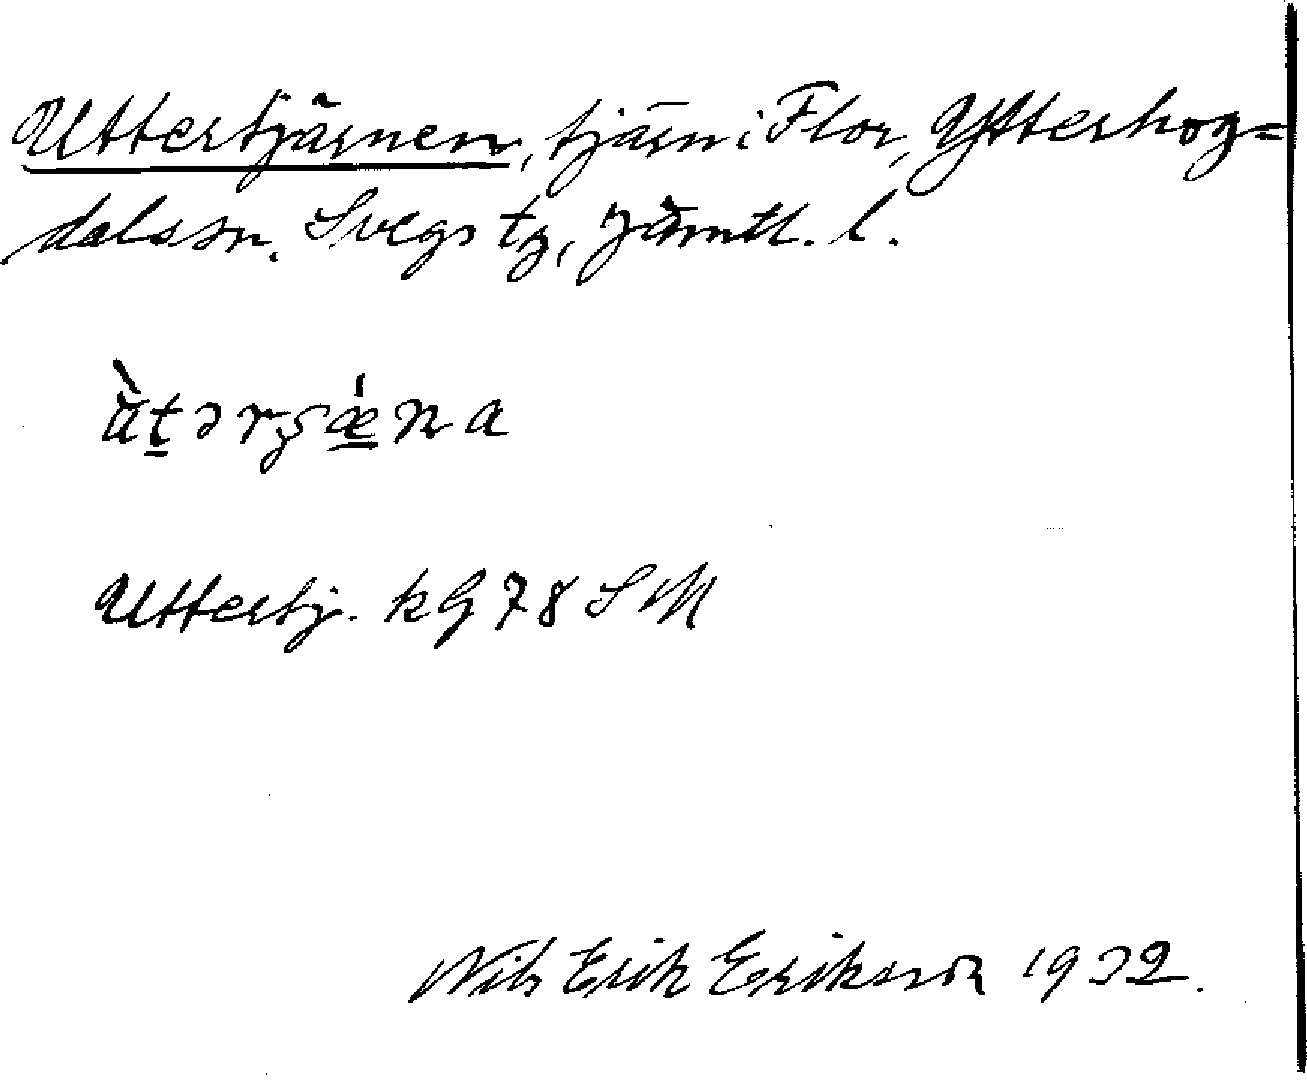 Uttertjärnen, tjärn i Flor, Ytterhog=
dalssn. Svegs tg, Jämtl. l.
ʉ̀t̲ərʂǽ̲na
Uttertj. kG 78 SM
Nils Erik Erikson 1932.